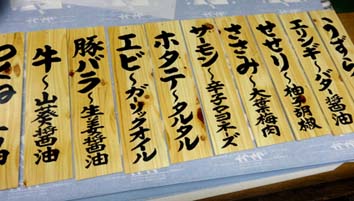 うずら
エリンギ〜バター醤油
せせり〜柚子胡椒
ささみ〜大葉梅肉
サーモン〜辛子マヨネーズ
ホタテ〜タルタル
エビ〜ガーリックオイル
豚バラ〜生姜醤油
牛〜山葵醤油